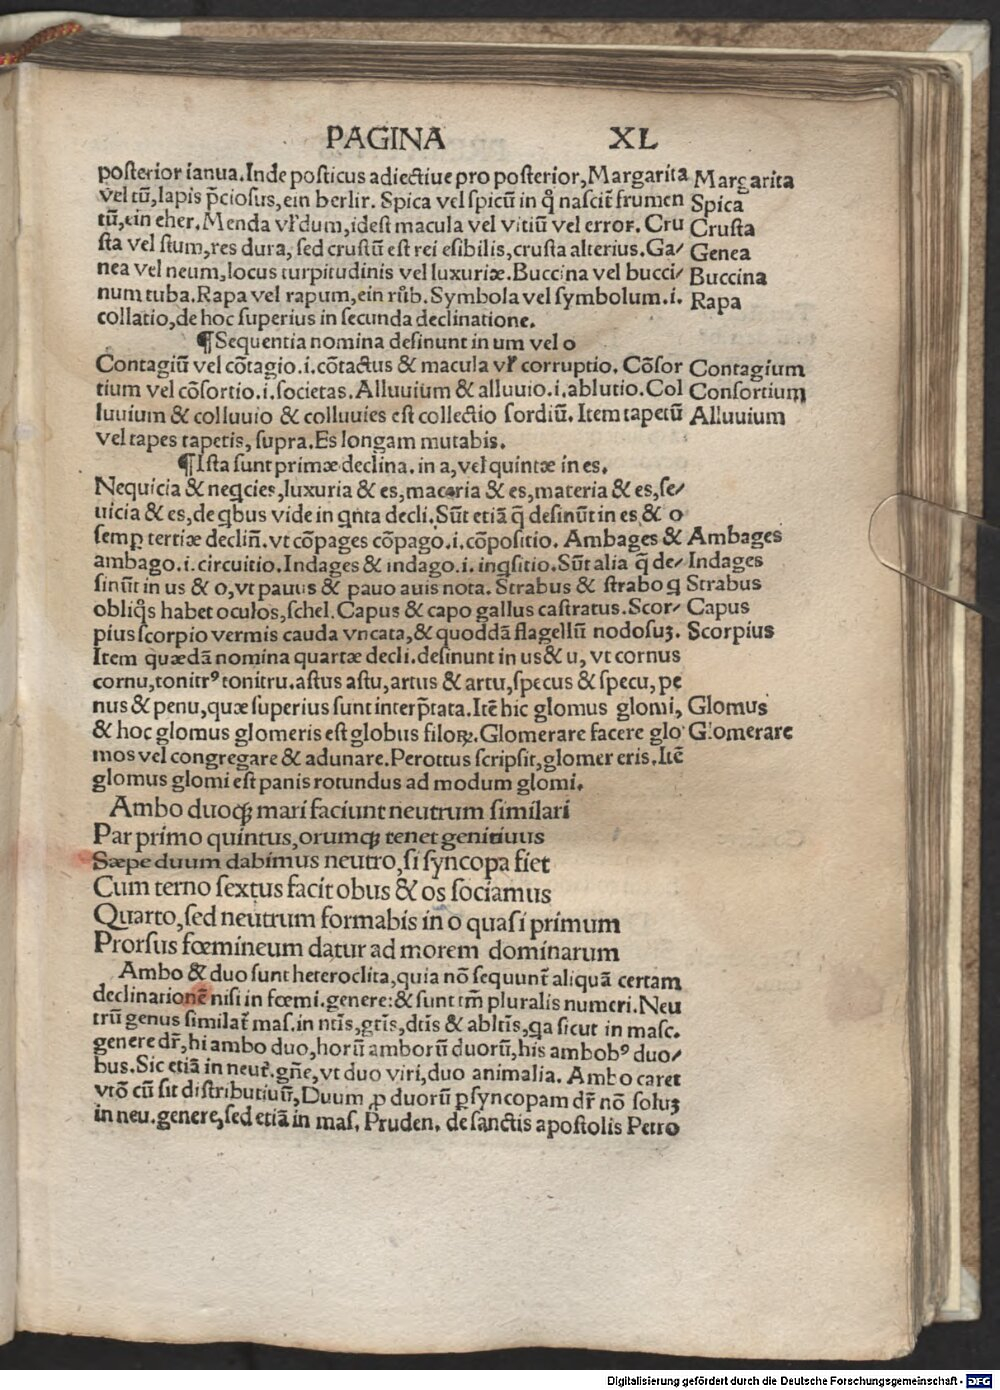 PAGINA XL
posterior ianua. Inde posticus adiectiue pro posterior, Margarita Margarita
vel tū, lapis p̄ciosus, ein berlir. Spica vel spicū in q̊ nascit̄ frumen Spica
tū, ein eher. Menda vl̓ dum, idest macula vel vitiū vel error. Cru Crusta
sta vel stum, res dura, sed crustū est rei esibilis, crusta alterius. Ga⸗ Genea
nea vel neum, locus turpitudinis vel luxuriæ. Buccina vel bucci⸗ Buccina
num tuba. Rapa vel rapum, ein růb. Symbola vel symbolum .i. Rapa
collatio, de hoc superius in secunda declinatione.
¶ Sequentia nomina desinunt in um vel o
Contagiū vel cōtagio .i. cōtactus & macula vl̓ corruptio. Cōsor Contagium
tium vel cōsortio .i. societas. Alluuium & alluuio .i. ablutio. Col Consortium
luuium & colluuio & colluuies est collectio sordiū. Item tapetū Alluuium
vel tapes tapetis, supra. Es longam mutabis.
¶ Ista sunt primæ declina. in a, vel quintæ in es.
Nequicia & neq̇cies, luxuria & es, maceria & es, materia & es, se⸗
uicia & es, de q̇bus vide in q̇nta decli. Sūt etiā q̄ desinūt in es & o
semꝑ tertiæ declin̄. vt cōpages cōpago .i. cōpositio. Ambages & Ambages
ambago .i. circuitio. Indages & indago .i. inq̇sitio. Sūt alia q̄ de⸗ Indages
sinūt in us & o, vt pauus & pauo auis nota. Strabus & strabo q̇ Strabus
obliq̊s habet oculos, schel. Capus & capo gallus castratus. Scor⸗ Capus
pius scorpio vermis cauda vncata, & quoddā flagellū nodosuꝫ. Scorpius
Item quædā nomina quartæ decli. desinunt in us & u, vt cornus
cornu, tonitrꝰ tonitru. astus astu, artus & artu, specus & specu, pe
nus & penu, quæ superius sunt interp̄tata. Itē hic glomus glomi, Glomus
& hoc glomus glomeris est globus filoꝝ. Glomerare facere glo Glomerare
mos vel congregare & adunare. Perottus scripsit, glomer eris. Itē
glomus glomi est panis rotundus ad modum glomi.
Ambo duoqꝫ mari faciunt neutrum similari
Par primo quintus, orumqꝫ tenet genitiuus
Sæpe duum dabimus neutro, si syncopa fiet
Cum terno sextus facit obus & os sociamus
Quarto, sed neutrum formabis in o quasi primum
Prorsus fœmineum datur ad morem dominarum
Ambo & duo sunt heteroclita, quia nō sequunt̄ aliquā certam
declinationē nisi in fœmi. genere: & sunt tm̄ pluralis numeri. Neu
trū genus similat̄ mas. in nt̄is, gt̄is, dt̄is & ablt̄is, q̇a sicut in masc.
genere dr̄, hi ambo duo, horū amborū duorū, his ambobꝰ duo⸗
bus. Sic etiā in neut̓. gn̄e, vt duo viri, duo animalia. Ambo caret
vtō cū sit distributiuū, Duum ꝓ duorū ꝑ syncopam dr̄ nō soluꝫ
in neu. genere, sed etiā in mas. Pruden. de sanctis apostolis Petro
Digitalisierung gefördert durch die Deutsche Forschungsgemeinschaft - DFG